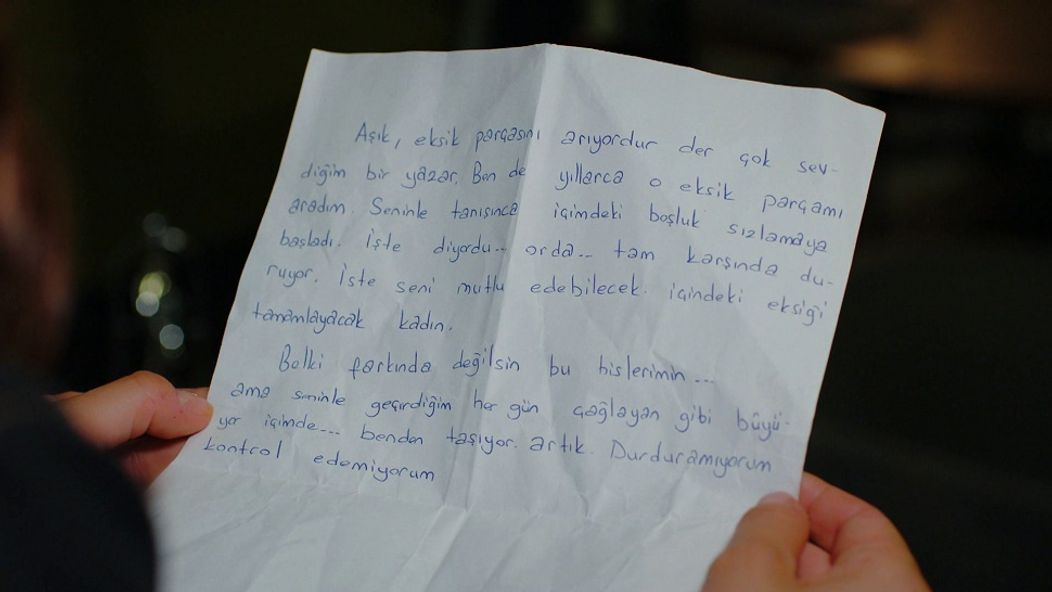 Aşık, eksik parçasını arıyordur der çok sev-
diğim bir yazar. Ben de yıllarca o eksik parçamı
aradım. Seninle tanışınca içimdeki boşluk sızlamaya
başladı. İşte diyordu... orda... tam karşında du-
ruyor. İşte seni mutlu edebilecek. içindeki eksiği
tamamlayacak kadın.
Belki farkında değilsin bu hislerimin...
ama seninle geçirdiğim her gün çağlayan gibi büyü-
yor içimde... benden taşıyor. artık. Durduramıyorum
kontrol edemiyorum